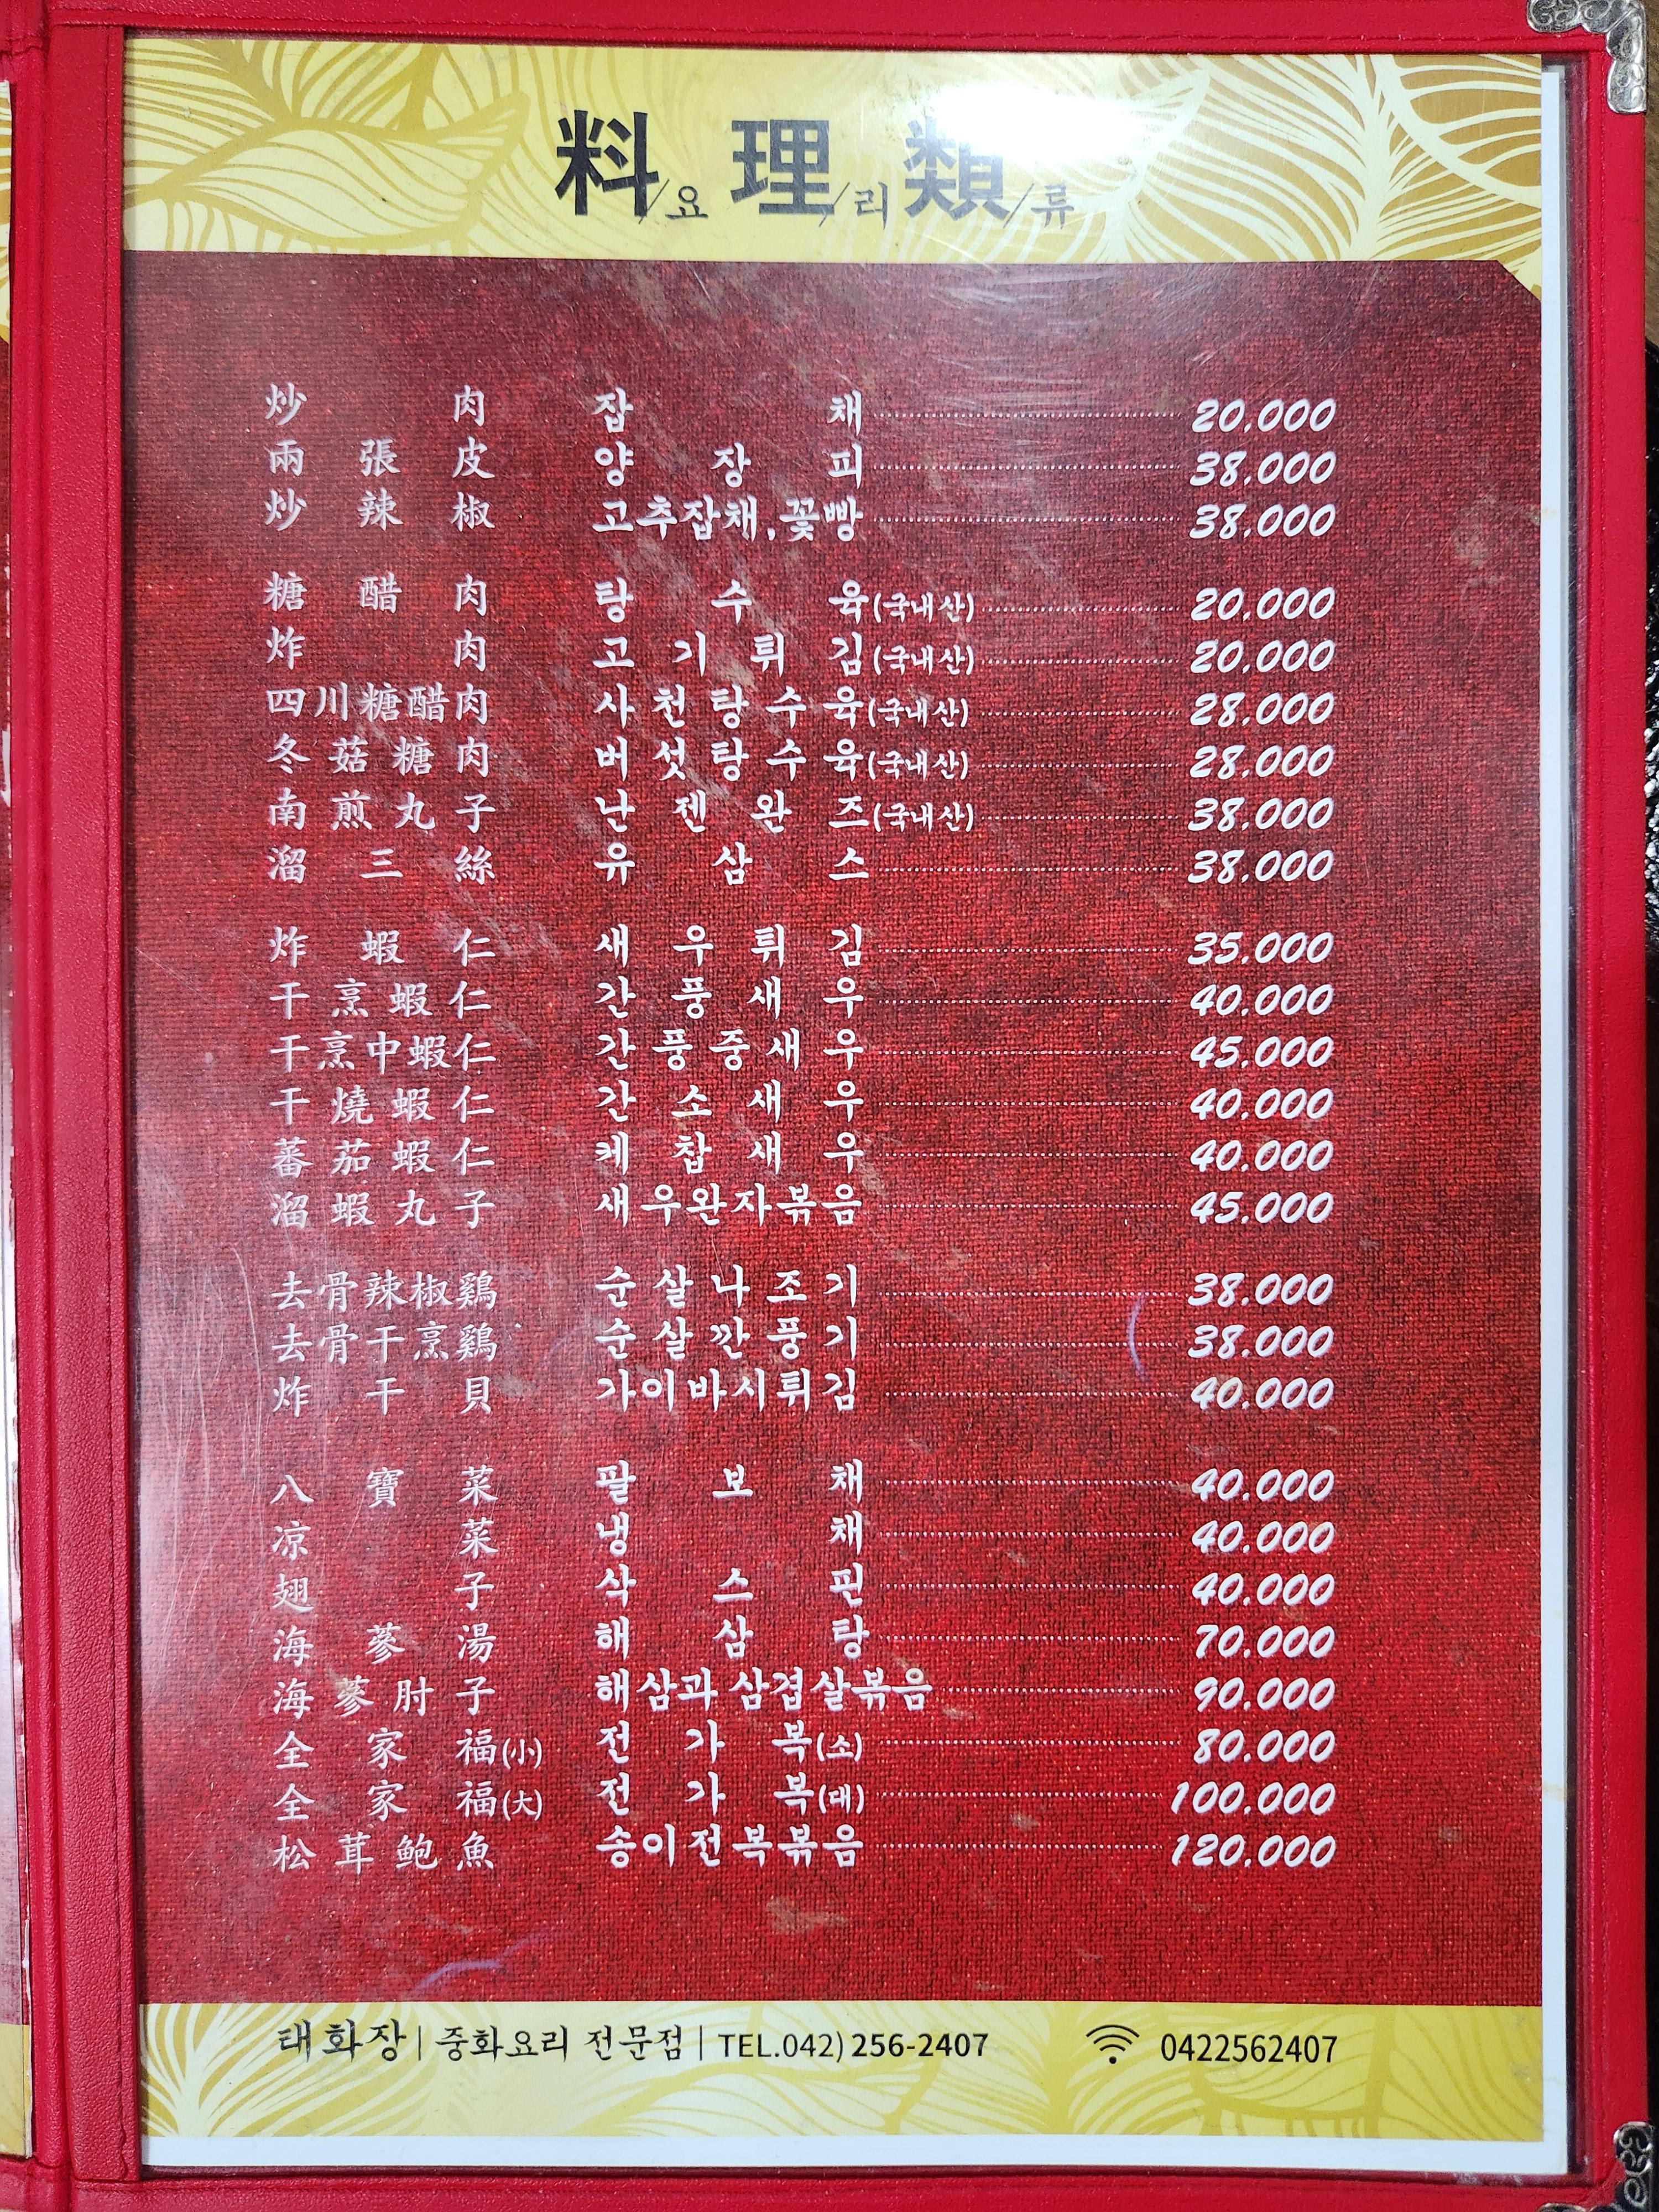 料/요 理/리 類/류
炒肉 잡채 20.000
兩張皮 양장피 38.000
炒辣椒 고추잡채,꽃빵 38.000
糖醋肉 탕수육(국내산) 20.000
炸肉 고기튀김(국내산) 20.000
四川糖醋肉 사천탕수육(국내산) 28.000
冬菇糖肉 버섯탕수육(국내산) 28.000
南煎丸子 난젠완즈(국내산) 38.000
溜三絲 유삼스 38.000
炸蝦仁 새우튀김 35.000
干烹蝦仁 간풍새우 40.000
干烹中蝦仁 간풍중새우 45.000
干燒蝦仁 간소새우 40.000
蕃茄蝦仁 케찹새우 40.000
溜蝦丸子 새우완자볶음 45.000
去骨辣椒鷄 순살나조기 38.000
去骨干烹鷄 순살깐풍기 38.000
炸干貝 가이바시튀김 40.000
八寶菜 팔보채 40.000
凉菜 냉채 40.000
翅子 삭스핀 40.000
海蔘湯 해삼탕 70.000
海蔘肘子 해삼과삼겹살볶음 90.000
全家福(小) 전가복(소) 80.000
全家福(大) 전가복(대) 100.000
松茸鮑魚 송이전복볶음 120.000
태화장 | 중화요리 전문점 | TEL.042) 256-2407 0422562407